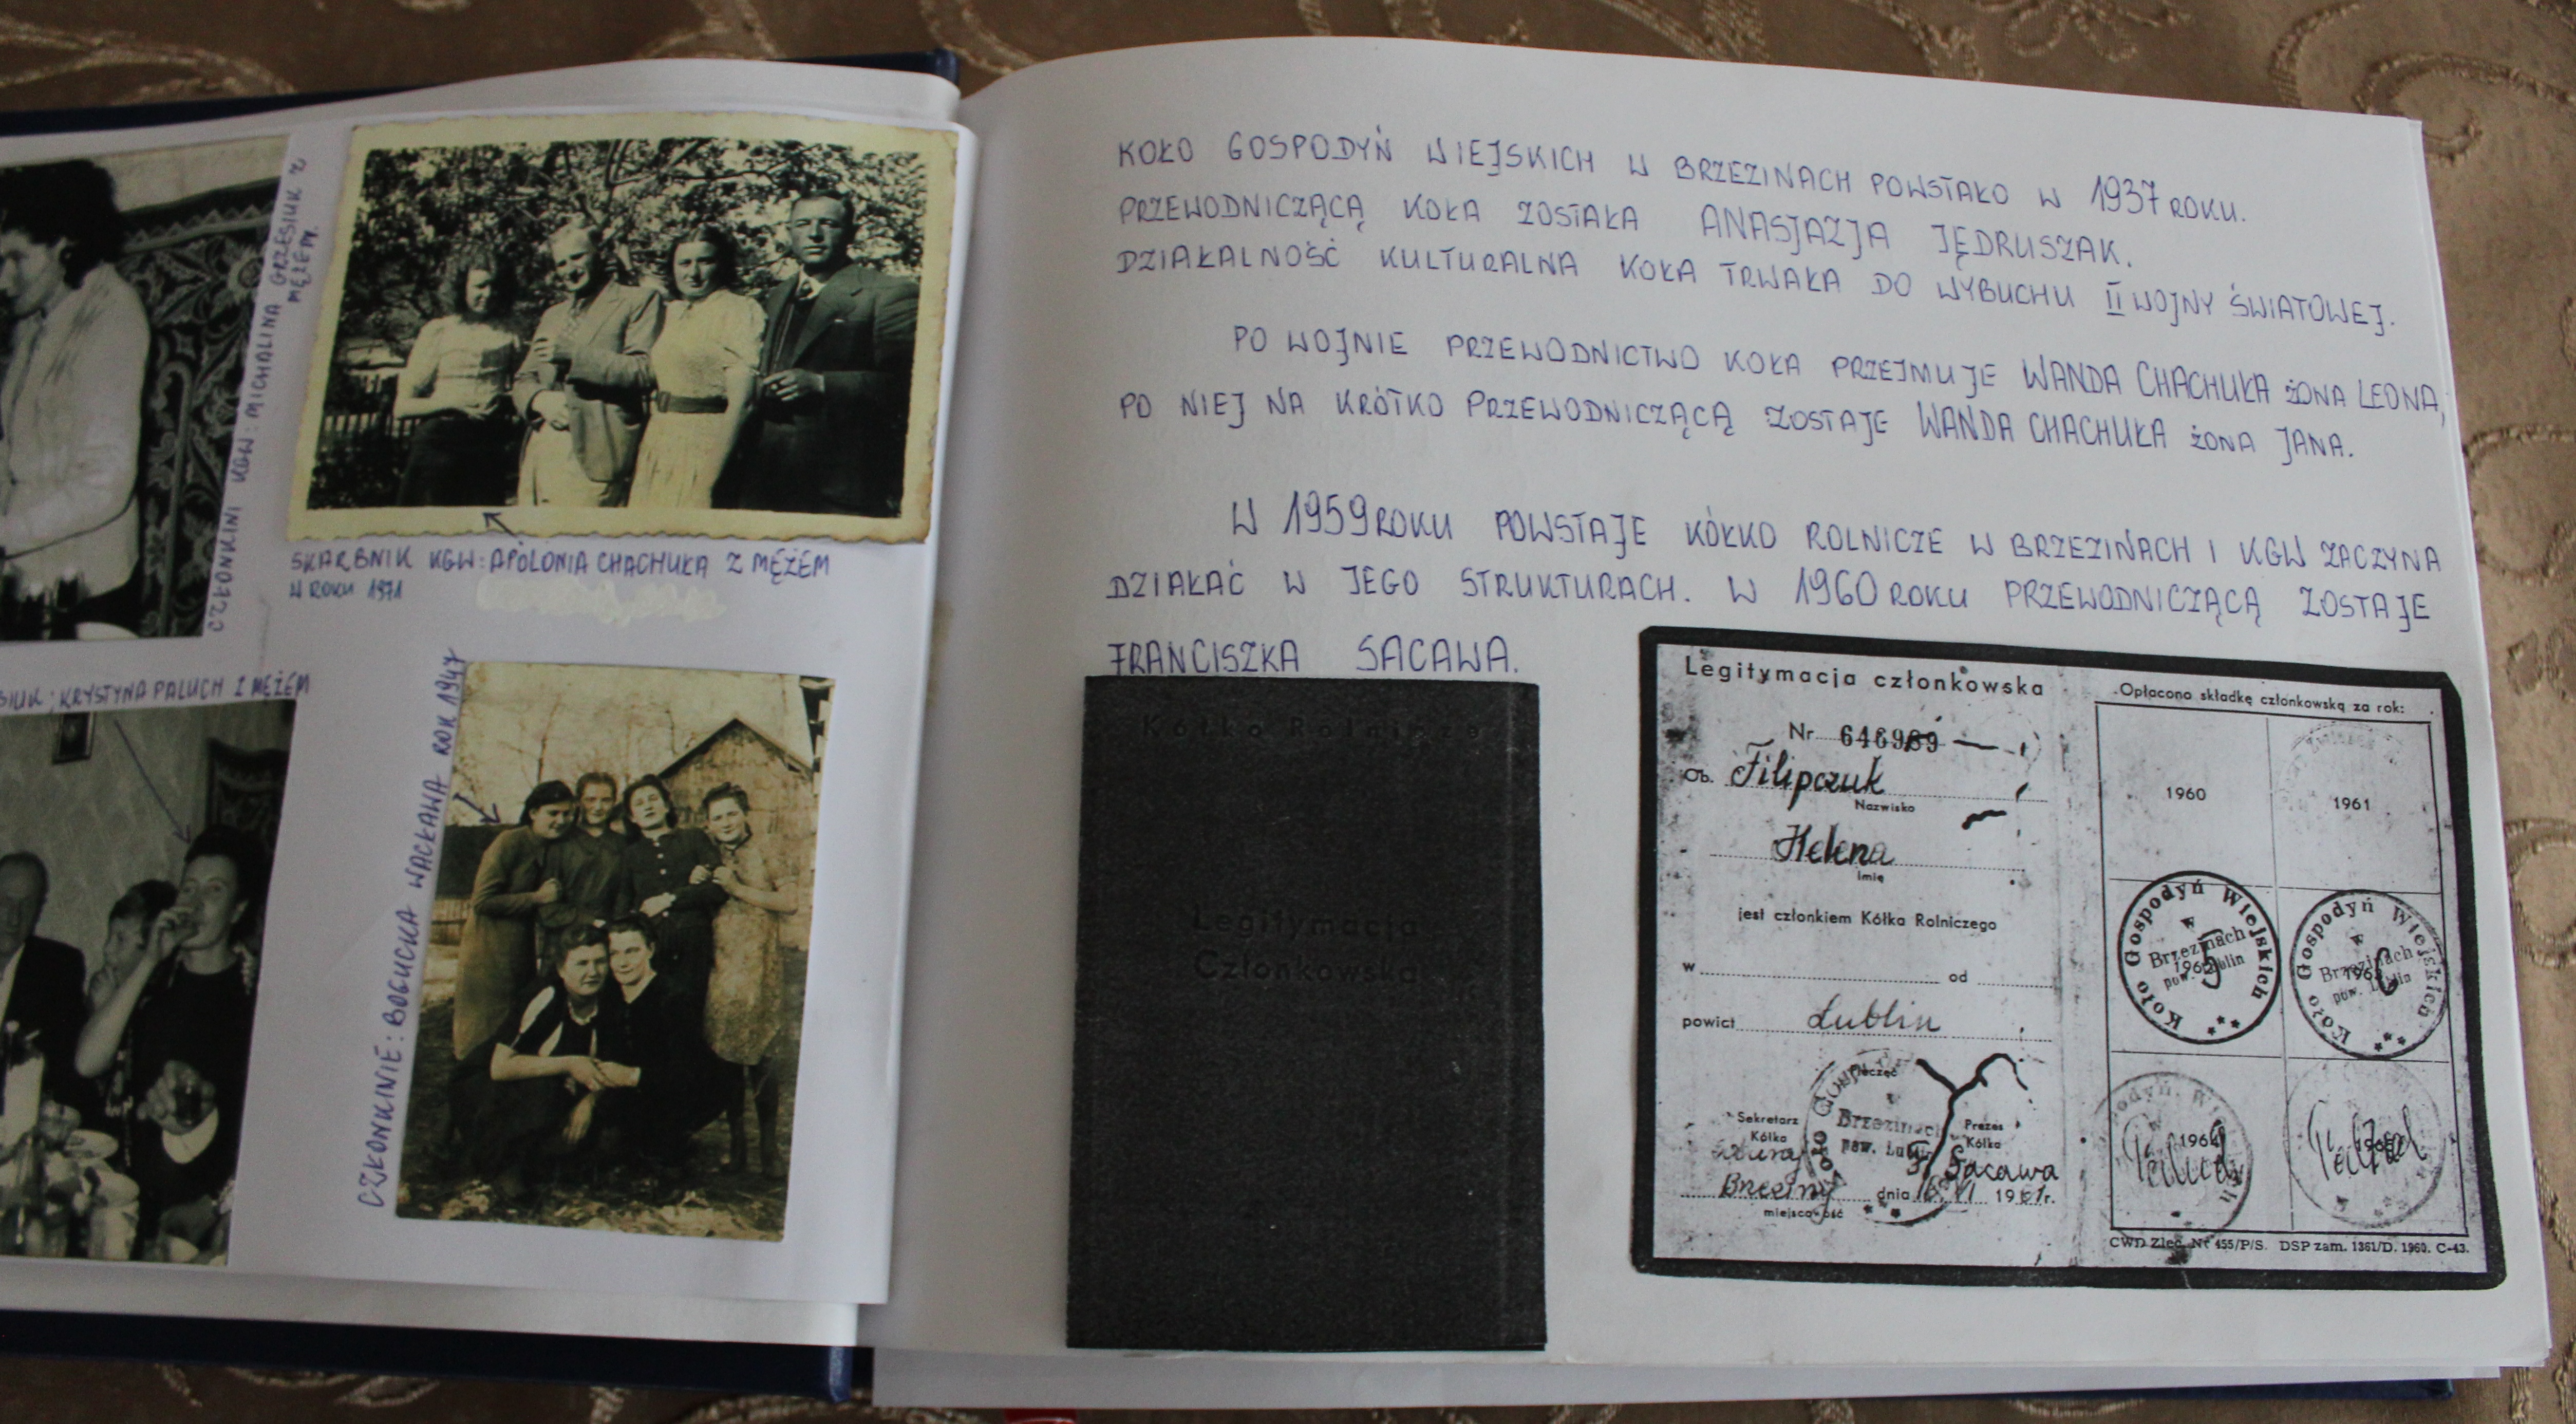 CZŁONKINI KGW: MICHALINA GRZESIUK Z
MĘŻEM.
SKARBNIK KGW: APOLONIA CHACHUŁA Z MĘŻEM
W ROKU 1971
SIUK; KRYSTYNA PALUCH Z MĘŻEM
CZŁONKINIE: BOGUCKA WACŁAWA ROK 1947
KOŁO GOSPODYŃ WIEJSKICH W BRZEZINACH POWSTAŁO W 1937 ROKU.
PRZEWODNICZĄCĄ KOŁA ZOSTAŁA ANASJAZJA JĘDRUSZAK.
DZIAŁALNOŚĆ KULTURALNA KOŁA TRWAŁA DO WYBUCHU II WOJNY ŚWIATOWEJ.
PO WOJNIE PRZEWODNICTWO KOŁA PRZEJMUJE WANDA CHACHUŁA ŻONA LEONA,
PO NIEJ NA KRÓTKO PRZEWODNICZĄCĄ ZOSTAJE WANDA CHACHUŁA ŻONA JANA.
W 1959 ROKU POWSTAJE KÓŁKO ROLNICZE W BRZEZINACH I KGW ZACZYNA
DZIAŁAĆ W JEGO STRUKTURACH. W 1960 ROKU PRZEWODNICZĄCĄ ZOSTAJE
FRANCISZKA SACAWA.
Kółko Rolnicze
Legitymacja
Członkowska
Legitymacja członkowska
Nr 646989
Ob. Filipczuk
Nazwisko
Helena
Imię
jest członkiem Kółka Rolniczego
w od
powiat Lublin
Pieczęć
Gospodyń
Brzezinach
pow. Lublin
Koło
Sekretarz
Kółka
Prezes
Kółka
F. Sacawa
Brzeziny dnia 16.VI 1961r.
miejscowość
Opłacono składkę członkowską za rok:
1960
1961
Koło Gospodyń Wiejskich
w
Brzezinach
pow. Lublin
1962
Koło Gospodyń Wiejskich
w
Brzezinach
pow. Lublin
1963
1964
CWD Zlec. Nr 455/P/S. DSP zam. 1361/D. 1960. C-43.